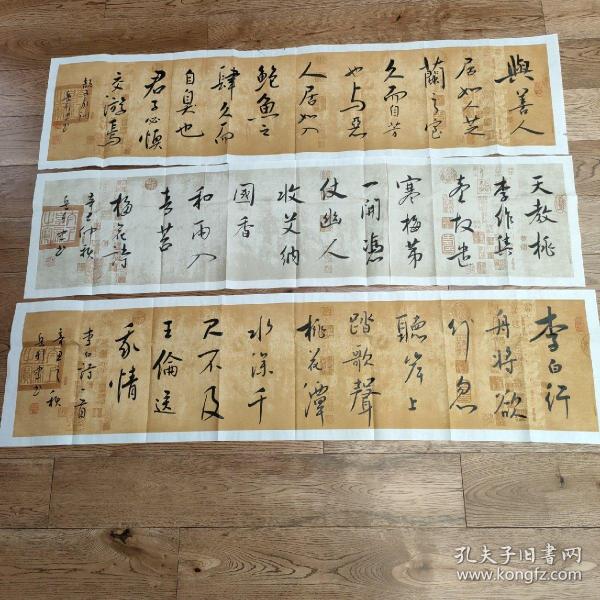 與善人
居如入芝
蘭之室
久而自芳
也与惡
人居如入
鮑魚之
肆久而
自臭也
君子必慎
交游焉
天教桃
李作輿
臺故遣
寒梅第
一開憑
仗幽人
收艾納
國香
和雨入
青苔
梅花詩
辛丑仲秋
李白行
舟將欲
行忽
聽岸上
踏歌聲
桃花潭
水深千
尺不及
汪倫送
我情
李白詩一首
辛丑之秋
孔夫子旧书网
www.kongfz.com